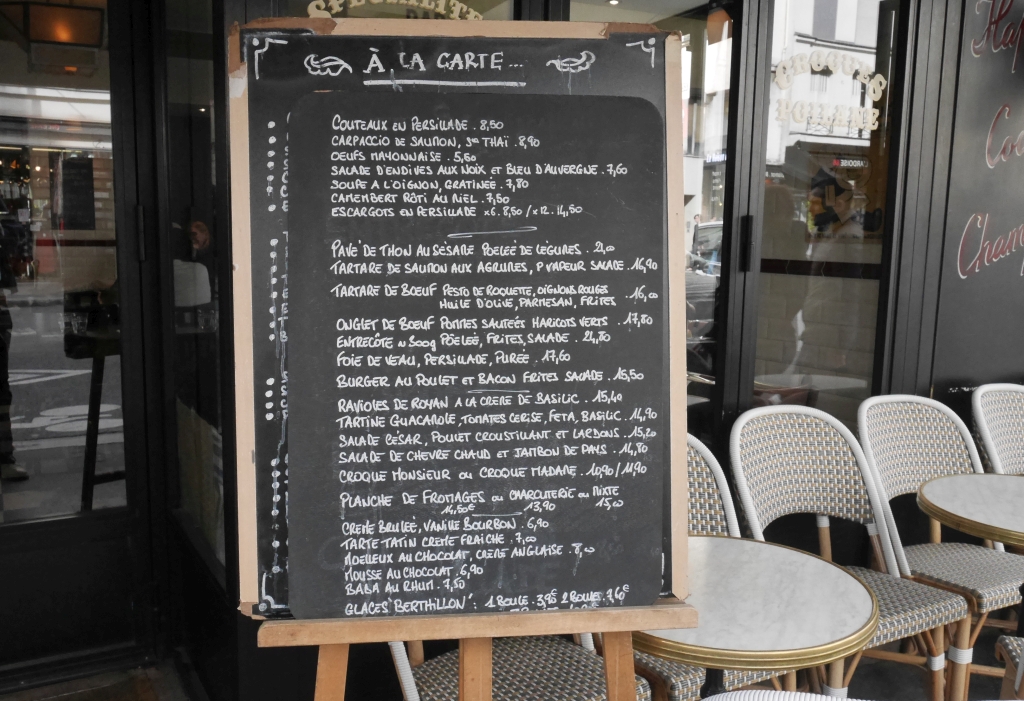 SPÉCIALITÉ
À LA CARTE...
COUTEAUX EN PERSILLADE . 8,50
CARPACCIO DE SAUMON, Sce THAÏ . 8,90
OEUFS MAYONNAISE . 5,50
SALADE D'ENDIVES AUX NOIX ET BLEU D'AUVERGNE . 7,60
SOUPE A L'OIGNON, GRATINÉE . 7,80
CAMEMBERT RÔTI AU MIEL . 7,50
ESCARGOTS EN PERSILLADE x6 . 8,50 / x12 . 14,50
PAVÉ DE THON AU SÉSAME POÊLÉE DE LÉGUMES . 21,00
TARTARE DE SAUMON AUX AGRUMES, P VAPEUR SALADE . 16,90
TARTARE DE BOEUF PESTO DE ROQUETTE, OIGNONS ROUGES
HUILE D'OLIVE, PARMESAN, FRITES . 16,00
ONGLET DE BOEUF POMMES SAUTÉES HARICOTS VERTS . 17,80
ENTRECÔTE ~ 300g POÊLÉE, FRITES, SALADE . 24,80
FOIE DE VEAU, PERSILLADE, PURÉE . 17,60
BURGER AU POULET ET BACON FRITES SALADE . 15,50
RAVIOLES DE ROYAN A LA CREME DE BASILIC . 15,40
TARTINE GUACAMOLE, TOMATES CERISE, FETA, BASILIC . 14,90
SALADE CÉSAR, POULET CROUSTILLANT ET LARDONS . 15,20
SALADE DE CHEVRE CHAUD ET JAMBON DE PAYS . 14,80
CROQUE MONSIEUR OU CROQUE MADAME . 10,90 / 11,90
PLANCHE DE FROMAGES OU CHARCUTERIE OU MIXTE
14,50€ 13,90 15,00
CREME BRULÉE, VANILLE BOURBON . 6,90
TARTE TATIN CREME FRAICHE . 7,00
MOELLEUX AU CHOCOLAT, CREME ANGLAISE . 8,00
MOUSSE AU CHOCOLAT . 6,90
BABA AU RHUM . 7,50
GLACES "BERTHILLON" : 1 BOULE . 3,90€ 2 BOULES . 7,60€
CROQUES
POILANE
L'ARDOISE